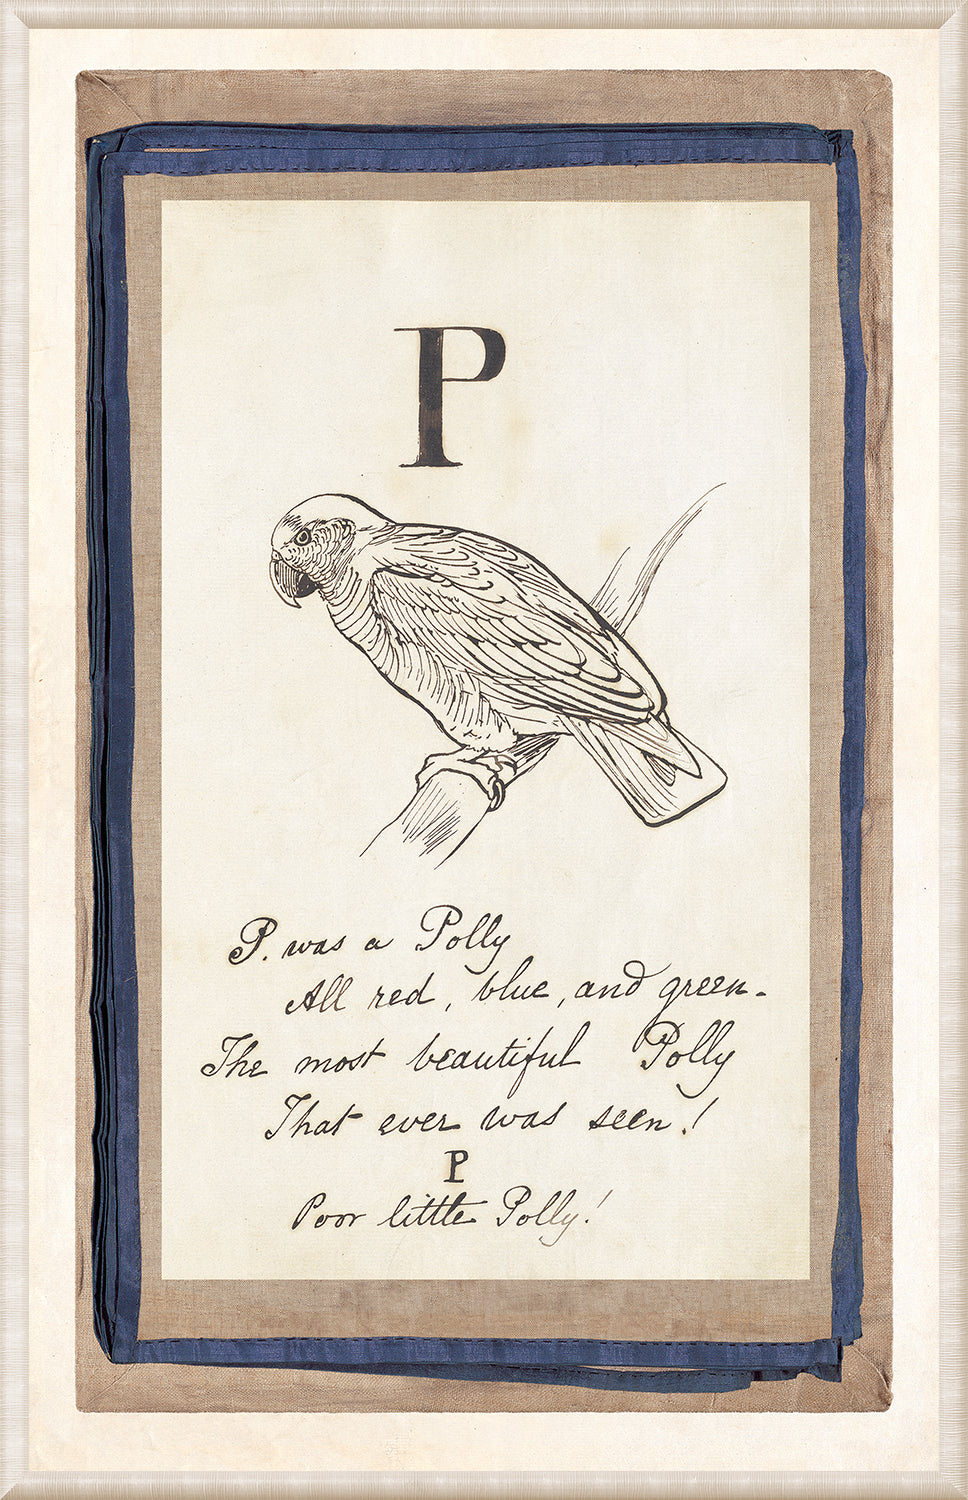 P
P. was a Polly
All red, blue, and green.
The most beautiful Polly
That ever was seen!
P
Poor little Polly!